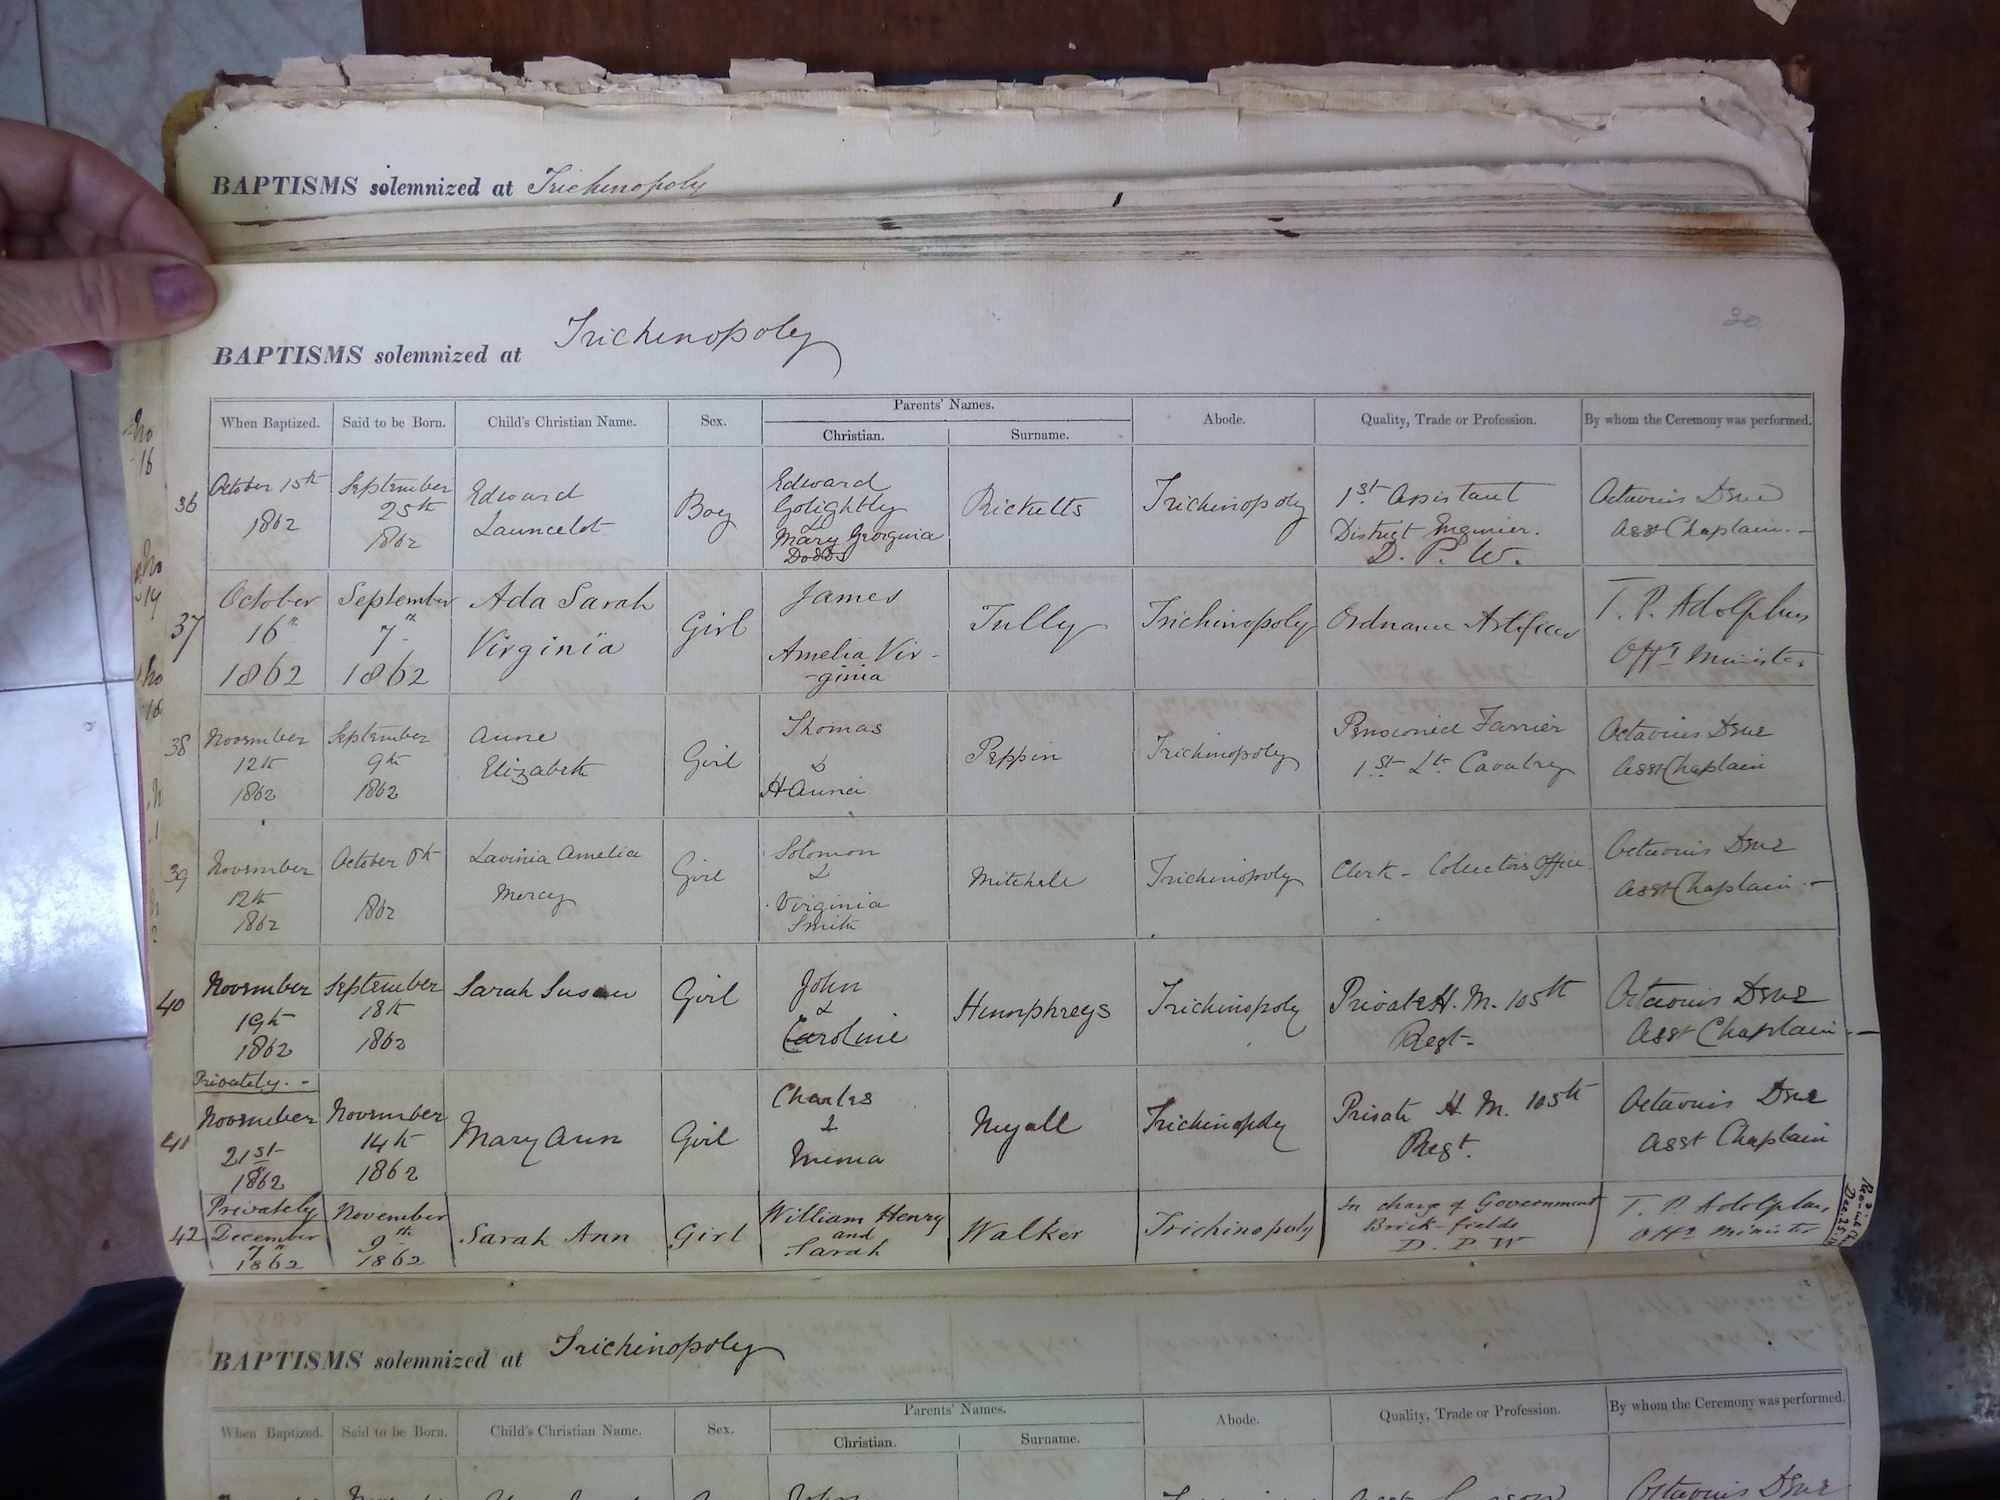 BAPTISMS solemnized at Trichinopoly
BAPTISMS solemnized at Trichinopoly
30
When Baptized. Said to be Born. Child's Christian Name. Sex. Parents' Names. Christian. Surname. Abode. Quality, Trade or Profession. By whom the Ceremony was performed.
36
October 15th 1862
September 25th 1862
Edward Launcelot
Boy
Edward Golightly & Mary Georgina Dodds
Ricketts
Trichinopoly
1st Assistant District Engineer. D. P. W.
Octavius Dene Asst Chaplain.-
37
October 16th 1862
September 7th 1862
Ada Sarah Virginia
Girl
James
Amelia Vir-
-ginia
Tully
Trichinopoly
Ordnance Artificer
T. P. Adolphus Offg Minister
38
November 12th 1862
September 9th 1862
Anne Elizabeth
Girl
Thomas & Hanna
Peppin
Trichinopoly
Pensioned Farrier 1st Lt. Cavalry
Octavius Dene Asst Chaplain
39
November 12th 1862
October 8th 1862
Lavinia Amelia Mercy
Girl
Solomon & Virginia Smith
Mitchell
Trichinopoly
Clerk - Collectors Office
Octavius Dene Asst Chaplain -
40
November 19th 1862
September 18th 1862
Sarah Susan
Girl
John & Caroline
Humphreys
Trichinopoly
Private H. M. 105th Regt-
Octavius Dene Asst Chaplain -
41
Privately. -
November 21st 1862
November 14th 1862
Mary Ann
Girl
Charles &
Myall
Trichinopoly
Private H. M. 105th Regt.
Octavius Dene Asst Chaplain
42
Privately
December 7th 1862
November 9th 1862
Sarah Ann
Girl
William Henry and Sarah
Walker
Trichinopoly
In charge of Government Brick-fields D. P. W
T. P. Adolphus Offg Minister
BAPTISMS solemnized at Trichinopoly
When Baptized. Said to be Born. Child's Christian Name. Sex. Parents' Names. Christian. Surname. Abode. Quality, Trade or Profession. By whom the Ceremony was performed.
John
Octavius Dene